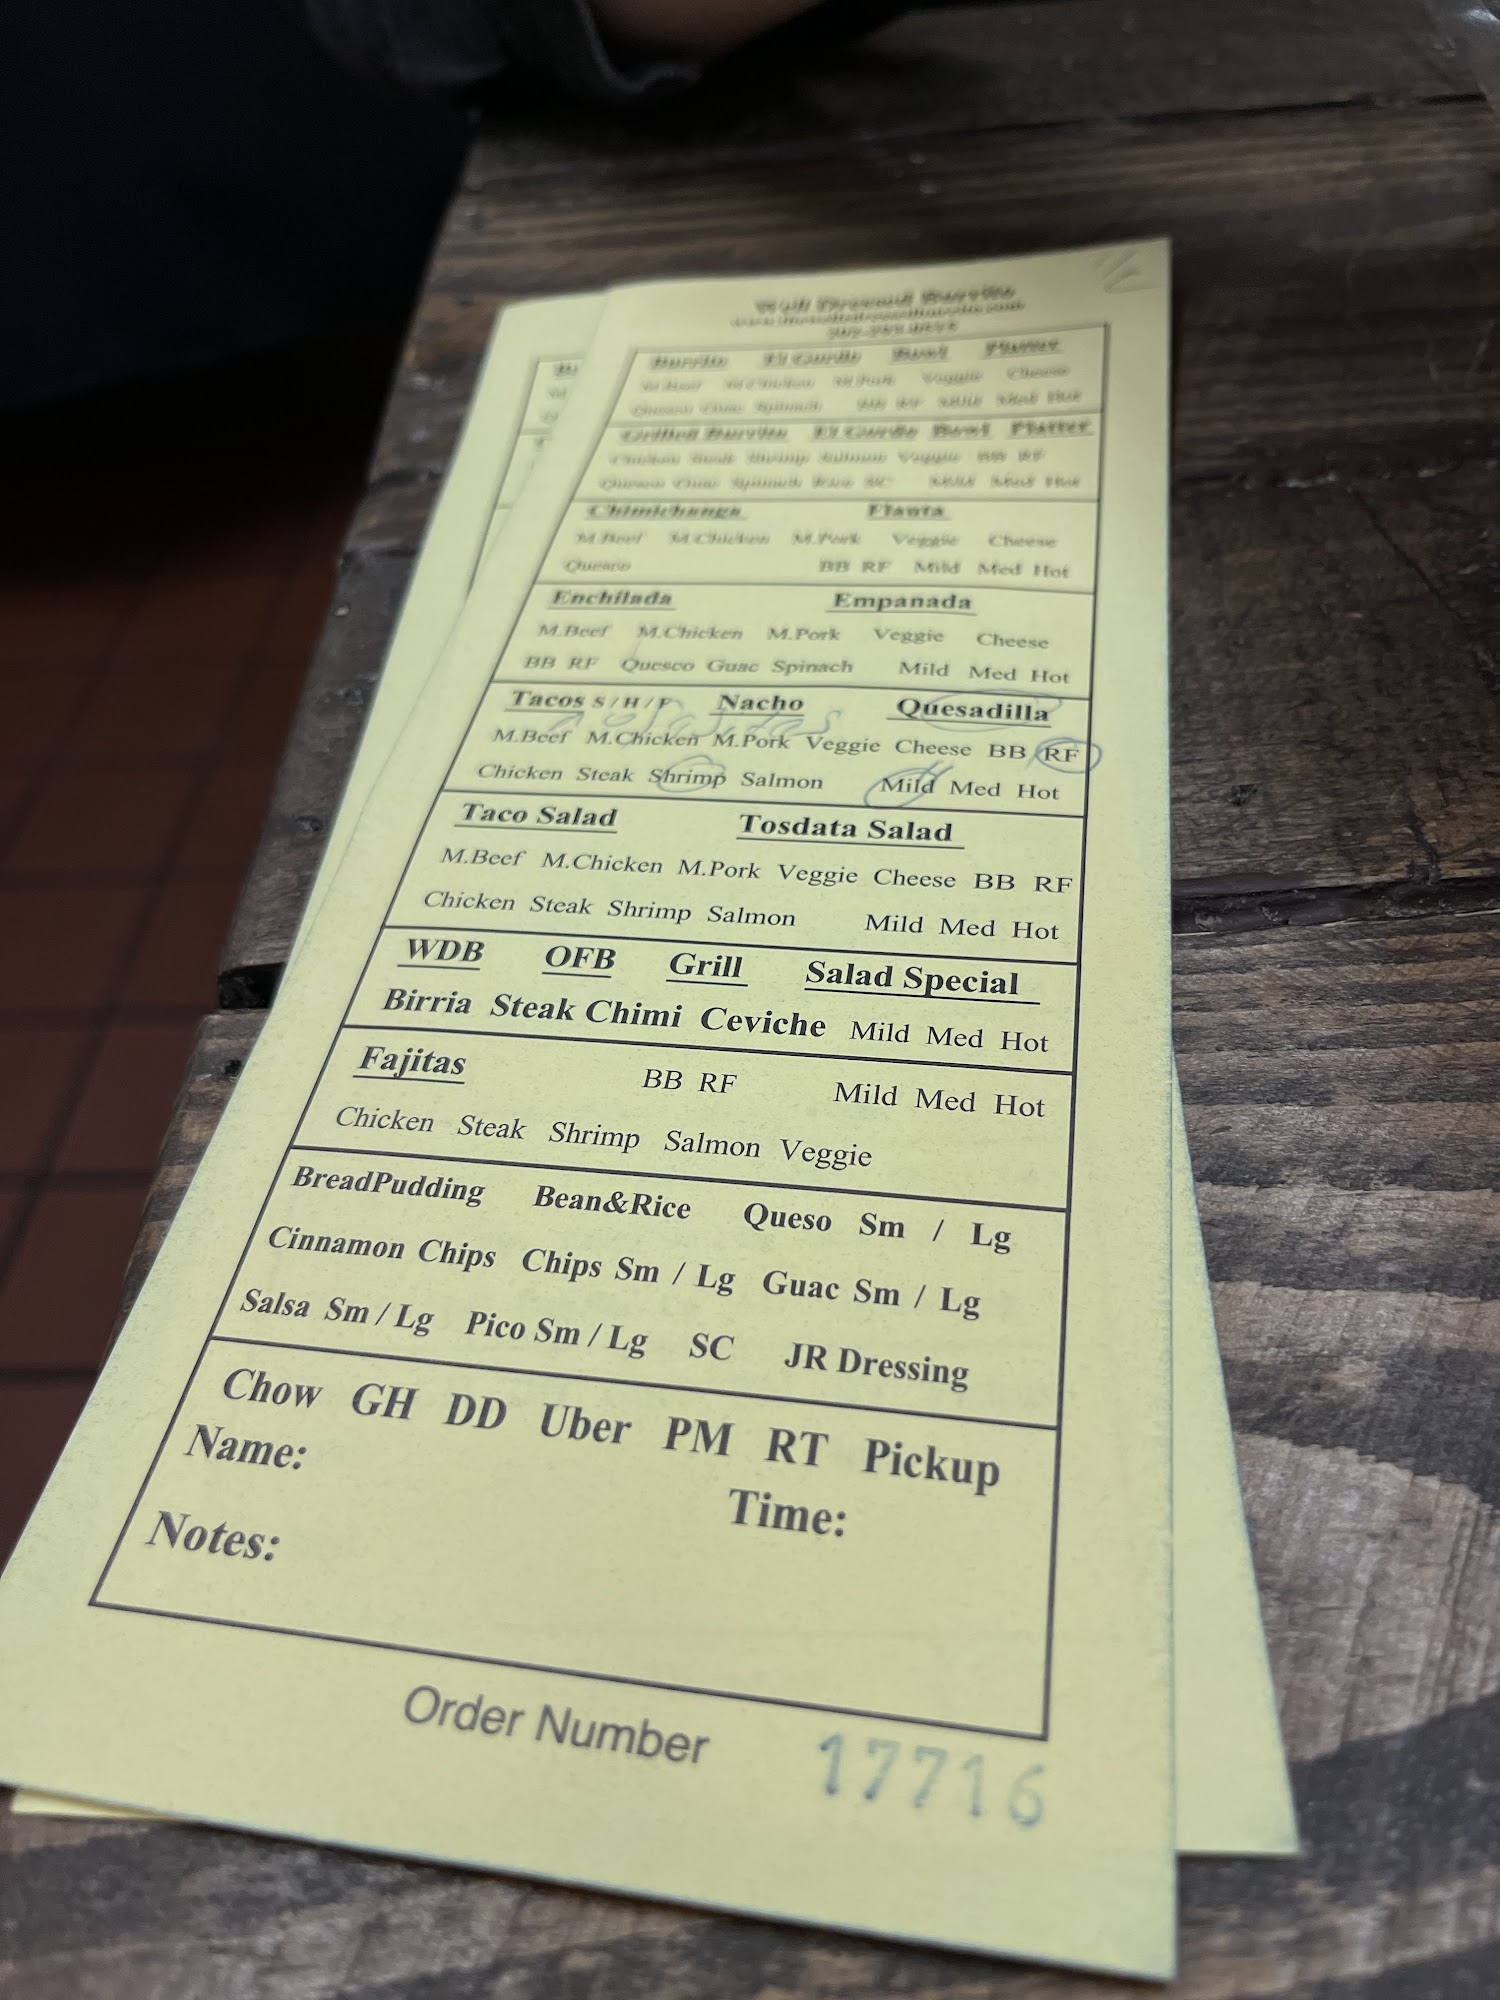 Well Dressed Burrito
Burrito El Gordo Bowl Platter
M.Beef M.Chicken M.Pork Veggie Cheese
Quesco Guac Spinach BB RF Mild Med Hot
Grilled Burrito El Gordo Bowl Platter
Chicken Steak Shrimp Salmon Veggie BB RF
Quesco Guac Spinach Rice SC Mild Med Hot
Chimichanga Flauta
M.Beef M.Chicken M.Pork Veggie Cheese
Quesco BB RF Mild Med Hot
Enchilada Empanada
M.Beef M.Chicken M.Pork Veggie Cheese
BB RF Quesco Guac Spinach Mild Med Hot
Tacos S / H / F Nacho Quesadilla
M.Beef M.Chicken M.Pork Veggie Cheese BB RF
Chicken Steak Shrimp Salmon Mild Med Hot
Taco Salad Tosdata Salad
M.Beef M.Chicken M.Pork Veggie Cheese BB RF
Chicken Steak Shrimp Salmon Mild Med Hot
WDB OFB Grill Salad Special
Birria Steak Chimi Ceviche Mild Med Hot
Fajitas BB RF Mild Med Hot
Chicken Steak Shrimp Salmon Veggie
BreadPudding Bean&Rice Queso Sm / Lg
Cinnamon Chips Chips Sm / Lg Guac Sm / Lg
Salsa Sm / Lg Pico Sm / Lg SC JR Dressing
Chow GH DD Uber PM RT Pickup
Name:
Time:
Notes:
Order Number 17716